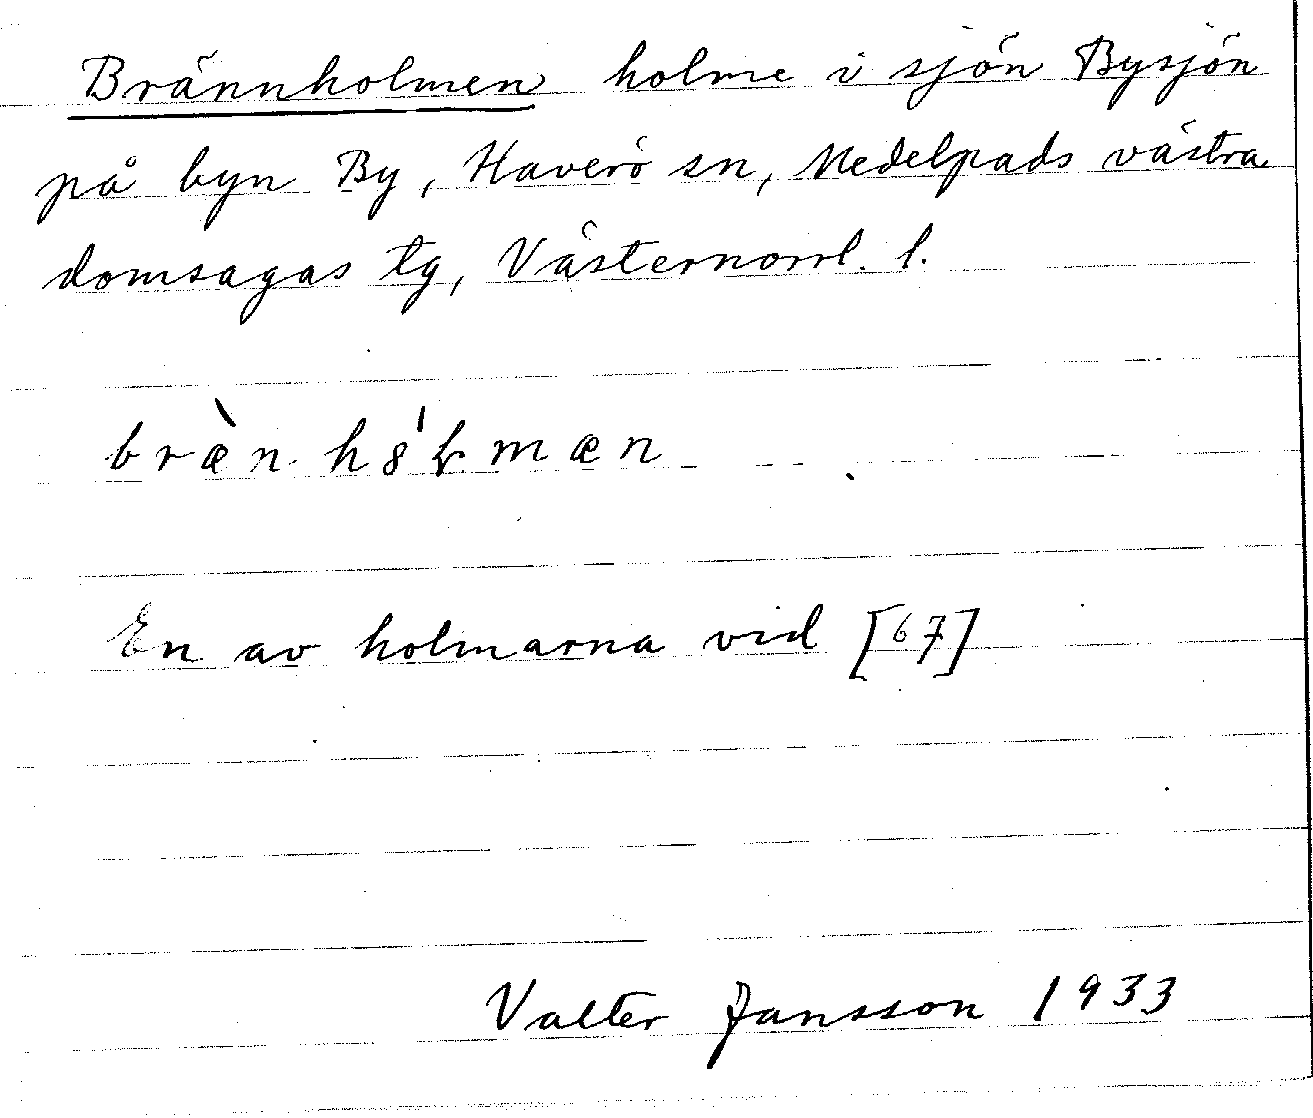 Brännholmen holme i sjön Bysjön
på byn By, Haverö sn, Medelpads västra
domsagas tg, Västernorrl. l.
En av holmarna vid [67]
Valter Jansson 1933